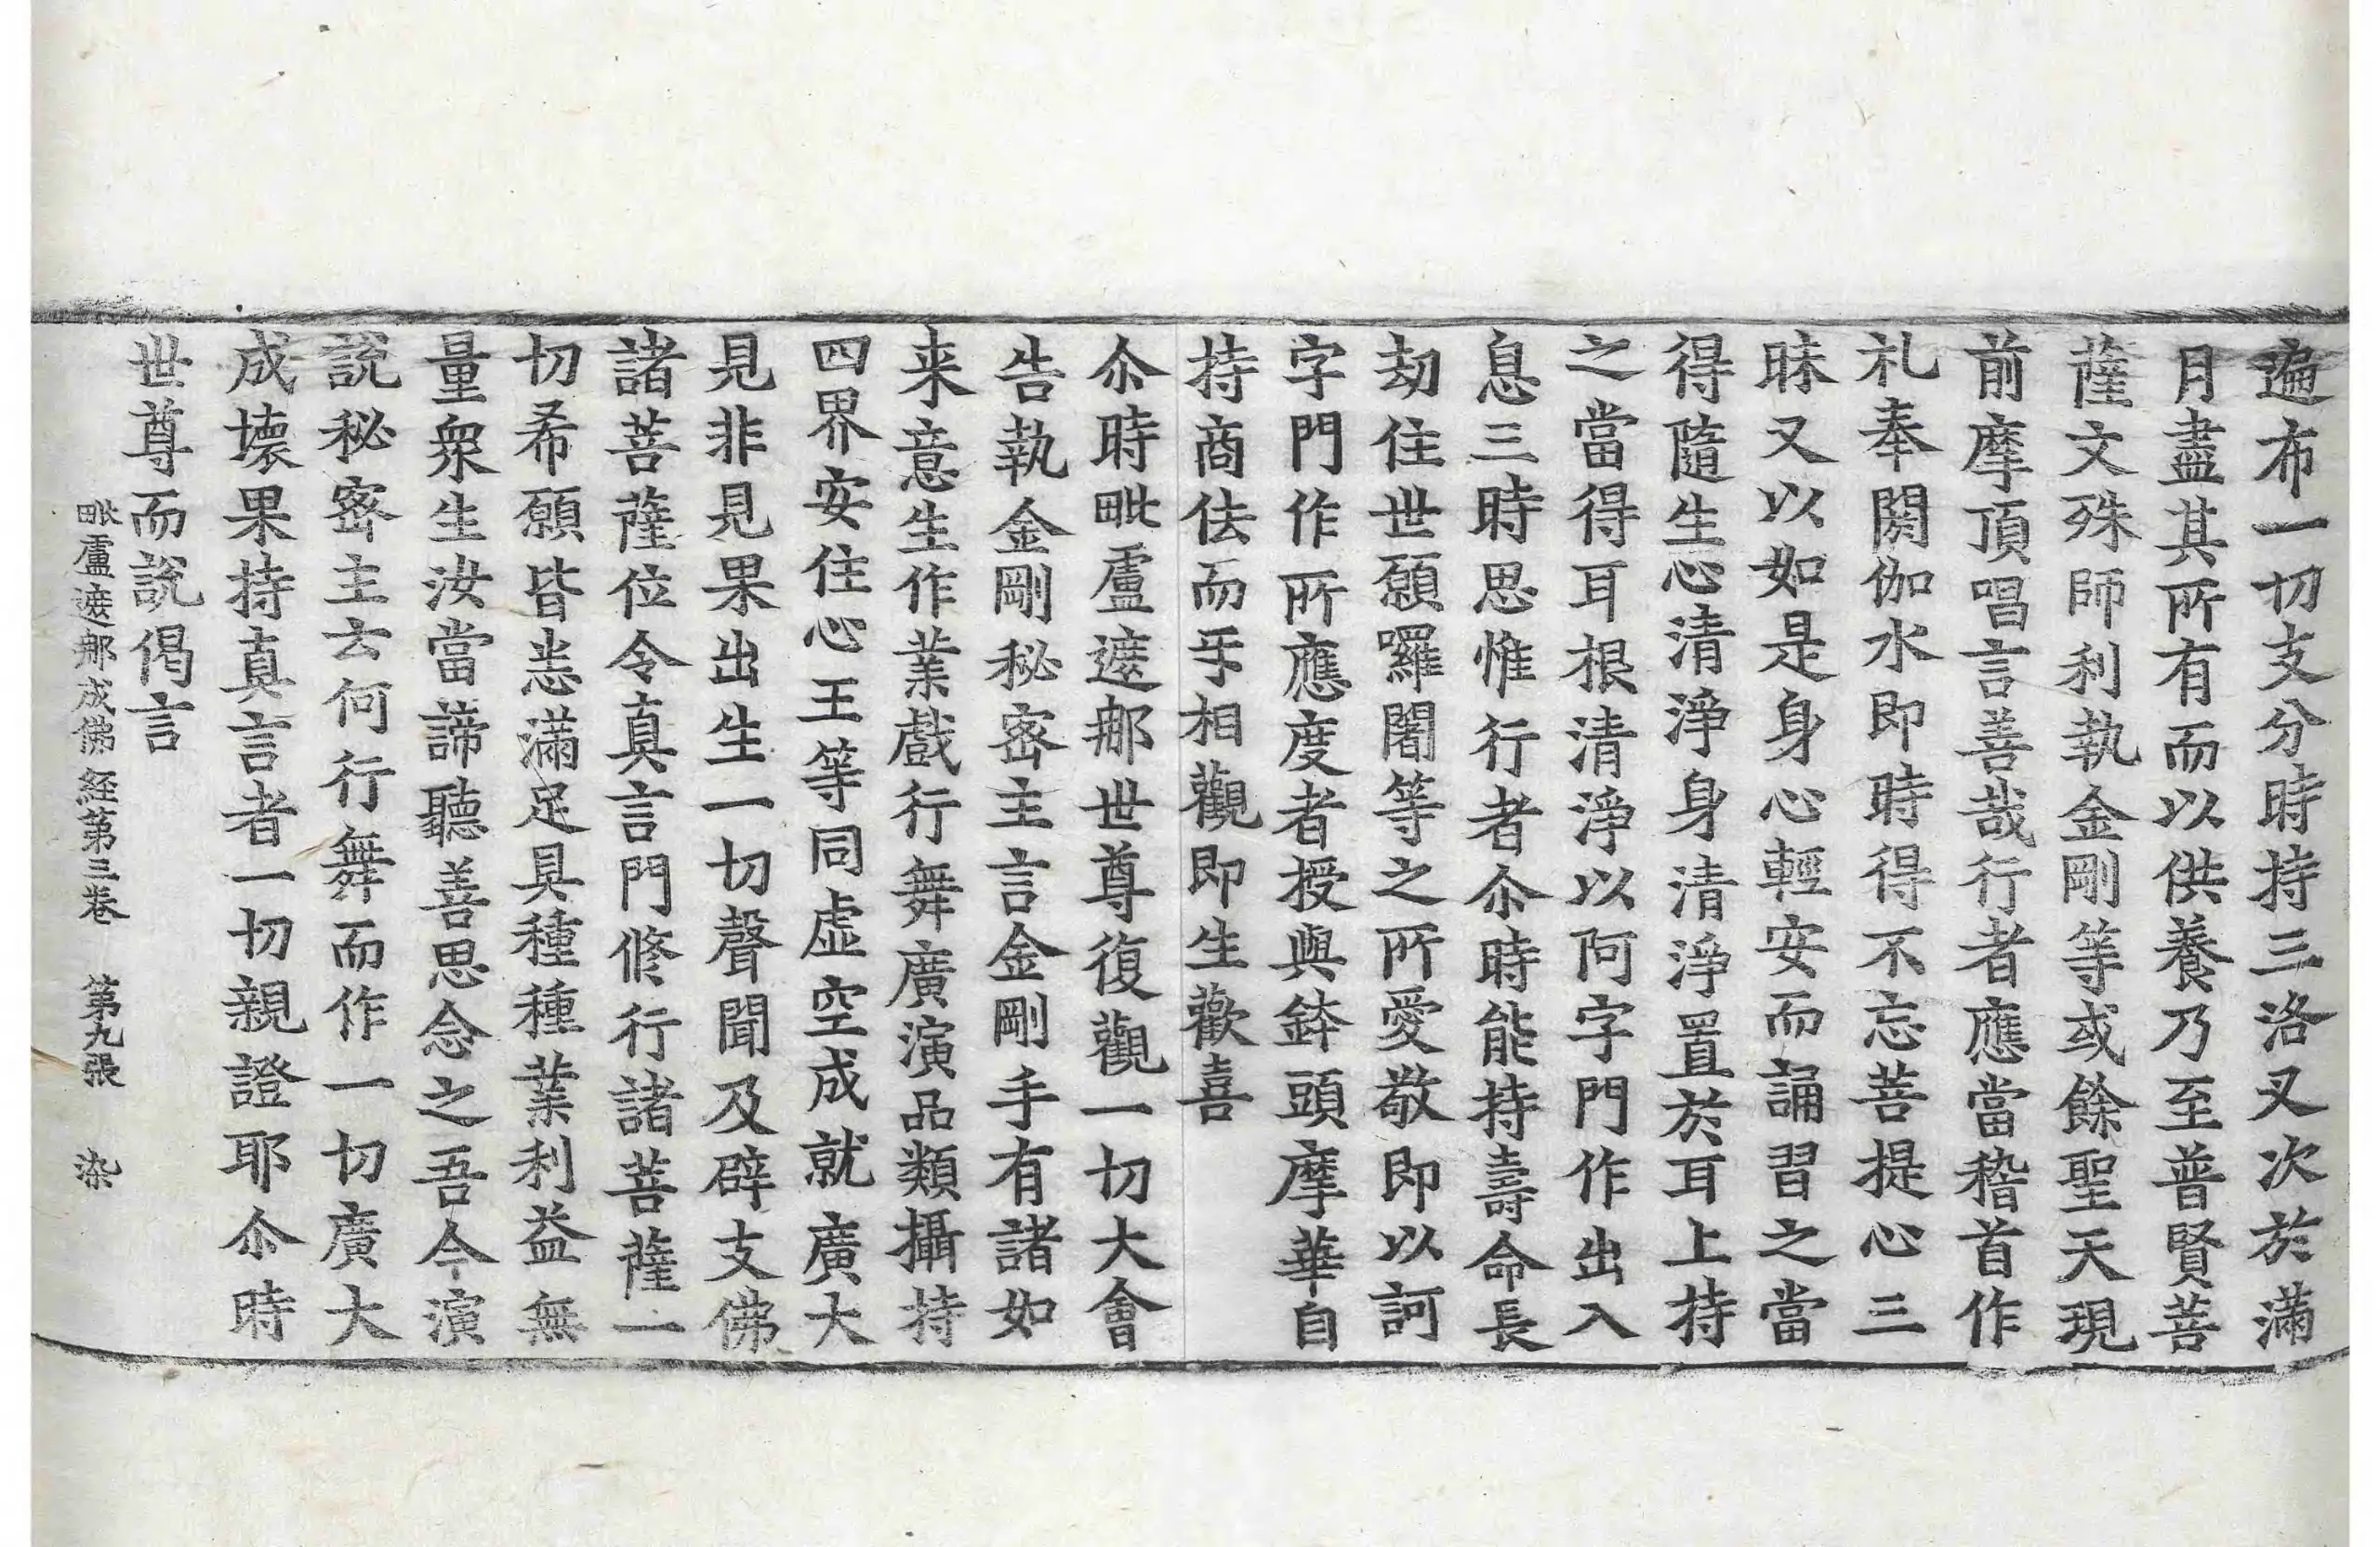 遍布一切支分時持三洛叉次於滿
月盡其所有而以供養乃至普賢菩
薩文殊師利執金剛等或餘聖天現
前摩頂唱言善哉行者應當稽首作
礼奉閼伽水即時得不忘菩提心三
昧又以如是身心輕安而誦習之當
得隨生心清淨身清淨置於耳上持
之當得耳根清淨以阿字門作出入
息三時思惟行者尒時能持壽命長
劫住世願囉闍等之所愛敬即以訶
字門作所應度者授與鉢頭摩華自
持商佉而㸦相觀即生歡喜
尒時毗盧遮那世尊復觀一切大會
告執金剛秘密主言金剛手有諸如
来意生作業戲行舞廣演品類攝持
四界安住心王等同虛空成就廣大
見非見果出生一切聲聞及辟支佛
諸菩薩位令真言門修行諸菩薩一
切希願皆悉滿足具種種業利益無
量衆生汝當諦聽善思念之吾今演
說秘密主云何行舞而作一切廣大
成壞果持真言者一切親證耶尒時
世尊而說偈言
毗盧遮那成佛經第三卷 第九張 染